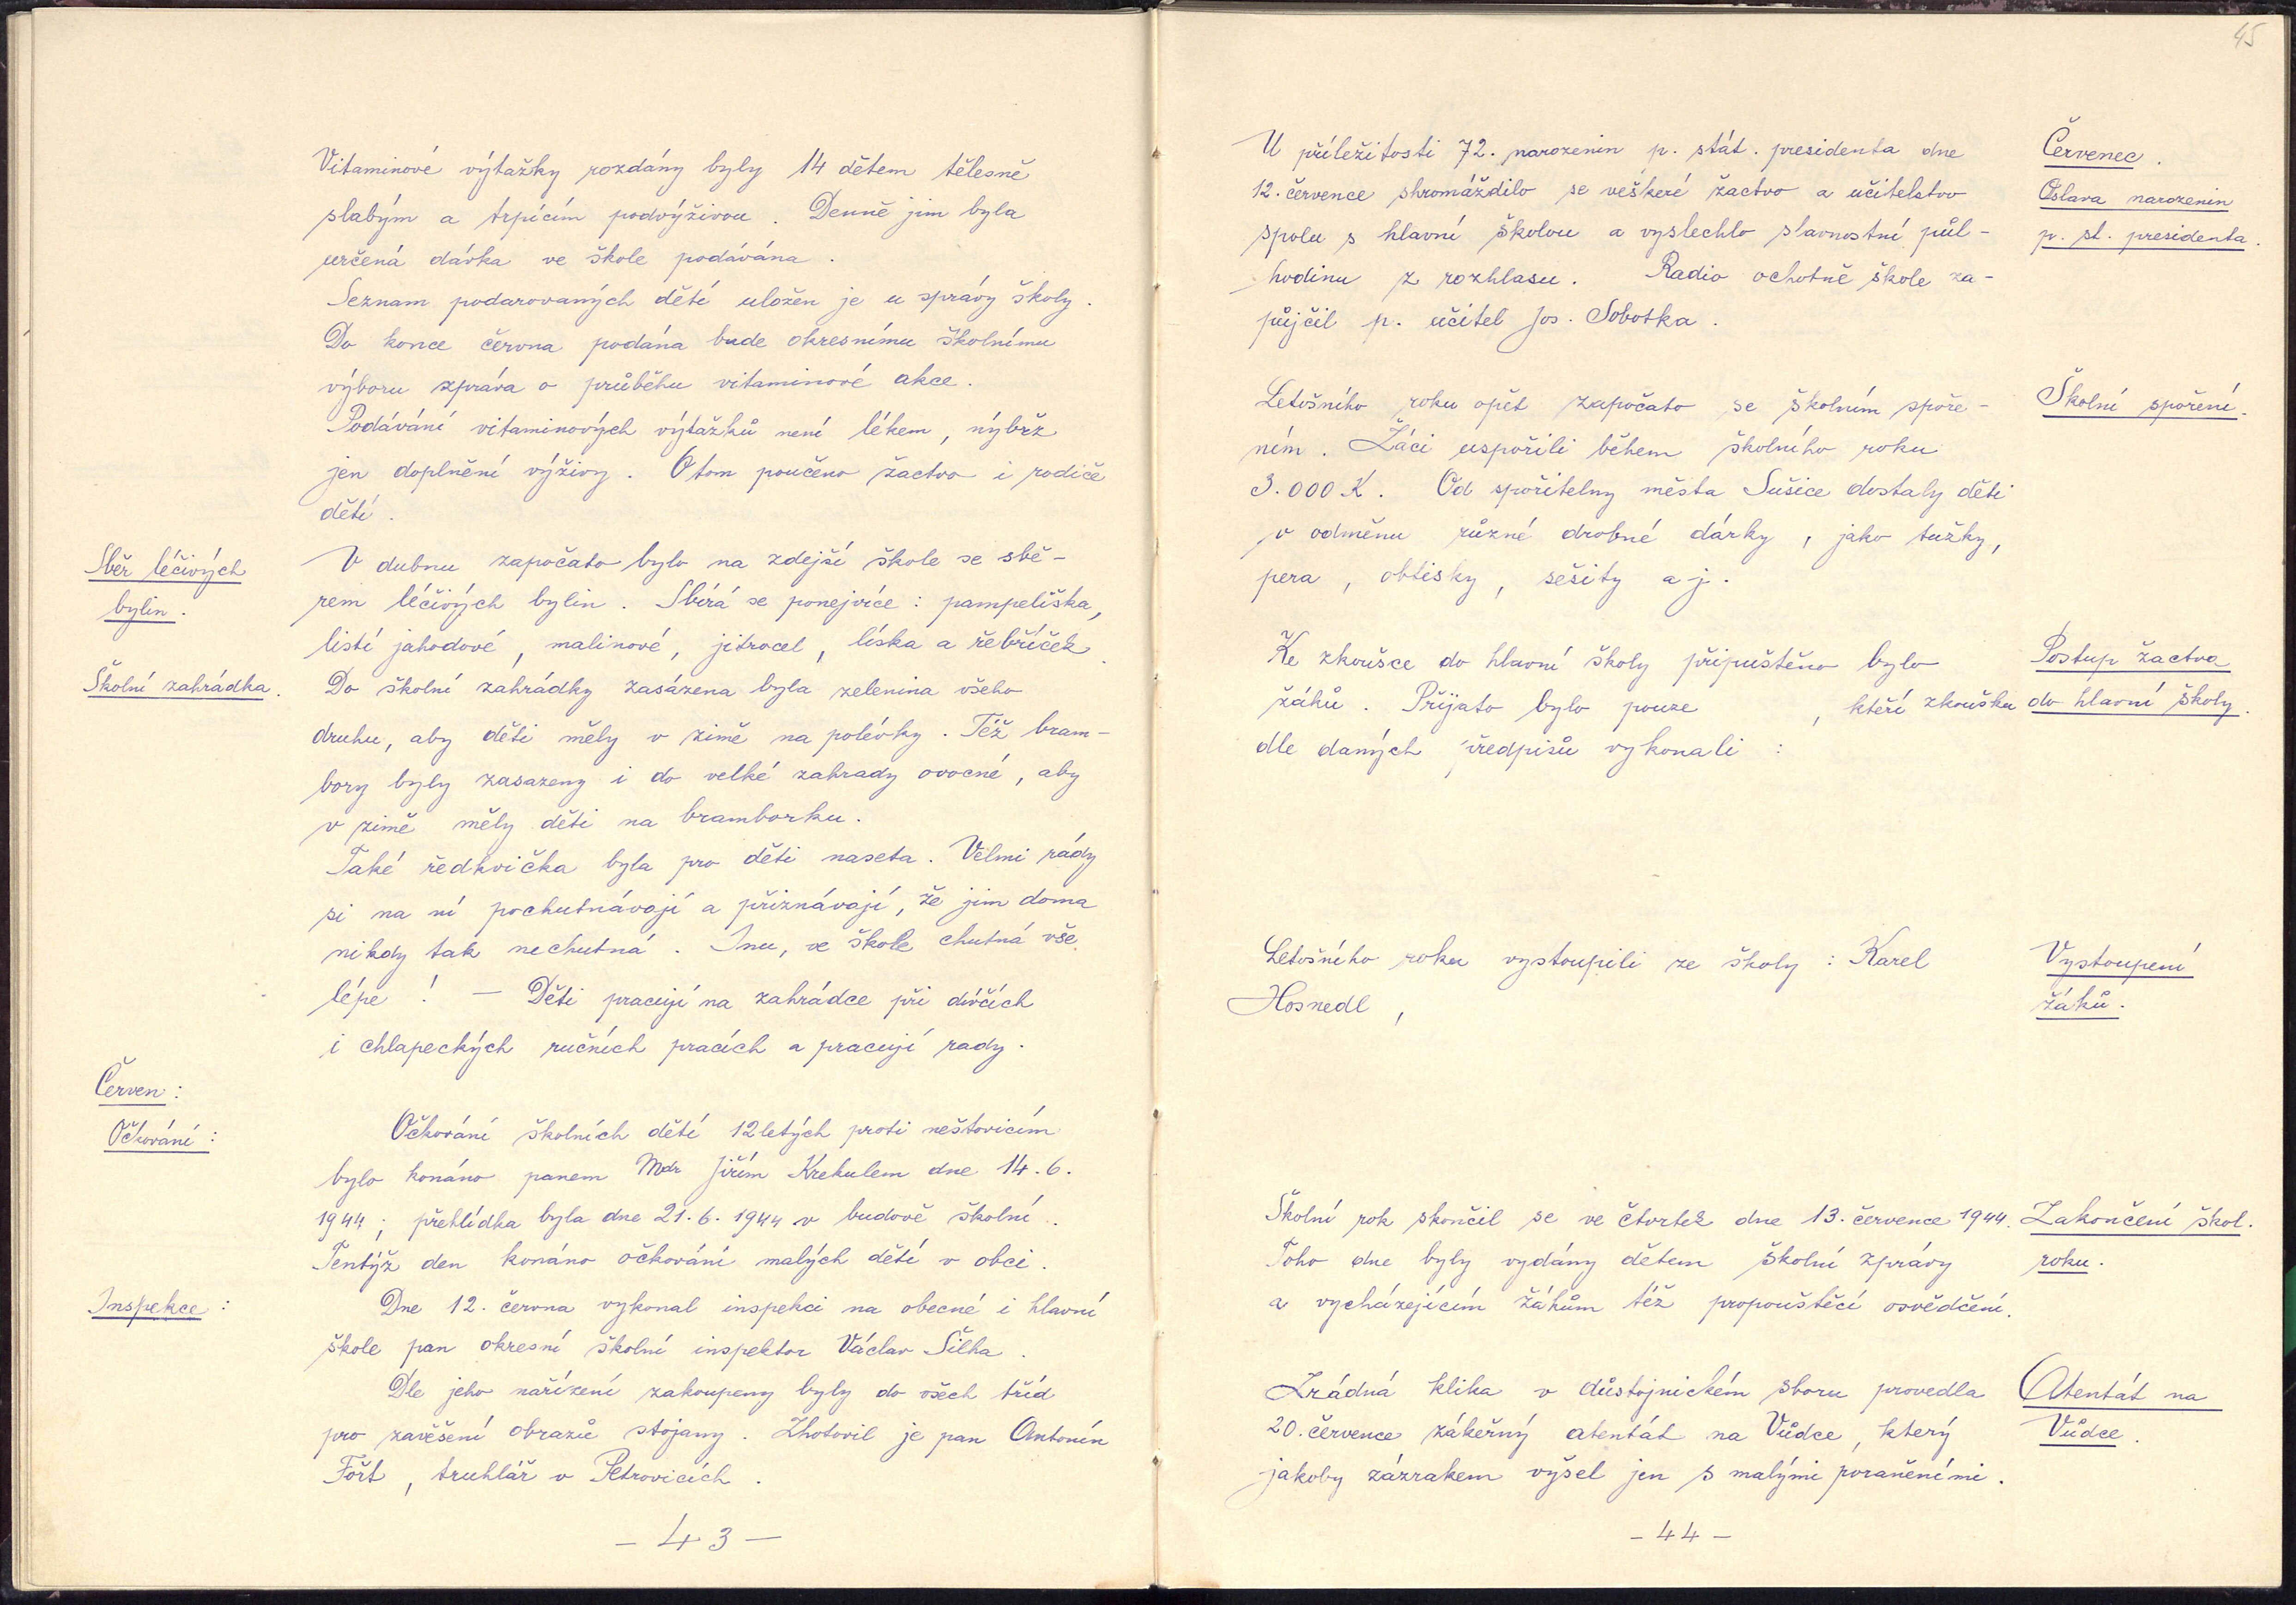 Vitaminové výtažky rozdány byly 14 dětem tělesně
slabým a trpícím podvýživou. Denně jim byla
určená dávka ve škole podávána.
Seznam podarovaných dětí uložen je u správy školy.
Do konce června podána bude okresnímu školnímu
výboru zpráva o průběhu vitaminové akce.
Podávání vitaminových výtažků není lékem, nýbrž
jen doplnění výživy. O tom poučeno žactvo i rodiče
dětí.
Sběr léčivých
bylin.
V dubnu započato bylo na zdejší škole se sbě-
rem léčivých bylin. Sbírá se ponejvíce: pampeliška,
listí jahodové, malinové, jitrocel, líska a řebříček.
Školní zahrádka.
Do školní zahrádky zasázena byla zelenina všeho
druhu, aby děti měly v zimě na polévky. Též bram-
bory byly zasazeny i do velké zahrady ovocné, aby
v zimě měly děti na bramborku.
Také ředkvička byla pro děti naseta. Velmi rády
si na ní pochutnávají a přiznávají, že jim doma
nikdy tak nechutná. Inu, ve škole chutná vše
lépe! — Děti pracují na zahrádce při dívčích
i chlapeckých ručních pracích a pracují rady.
Červen:
Očkování:
Očkování školních dětí 12letých proti neštovicím
bylo konáno panem Mdr Jiřím Krekulem dne 14.6.
1944; přehlídka byla dne 21.6.1944 v budově školní.
Tentýž den konáno očkování malých dětí v obci.
Inspekce:
Dne 12. června vykonal inspekci na obecné i hlavní
škole pan okresní školní inspektor Václav Šilha.
Dle jeho nařízení zakoupeny byly do všech tříd
pro zavěšení obrazů stojany. Zhotovil je pan Antonín
Fořt, truhlář v Petrovicích.
- 43 -
45
U příležitosti 72. narozenin p. stát. presidenta dne
12. července shromáždilo se veškeré žactvo a učitelstvo
spolu s hlavní školou a vyslechlo slavnostní půl-
hodinu z rozhlasu. Radio ochotně škole za-
půjčil p. učitel Jos. Sobotka.
Červenec.
Oslava narozenin
p. st. presidenta.
Letošního roku opět započato se školním spoře-
ním. Žáci uspořili během školního roku
3.000 K. Od spořitelny města Sušice dostaly děti
v odměnu různé drobné dárky, jako tužky,
pera, obtisky, sešity a j.
Školní spoření.
Ke zkoušce do hlavní školy připuštěno bylo
žáků. Přijato bylo pouze , kteří zkoušku
dle daných předpisů vykonali:
Postup žactva
do hlavní školy.
Letošního roku vystoupili ze školy: Karel
Hosnedl,
Vystoupení
žáků.
Školní rok skončil se ve čtvrtek dne 13. července 1944.
Toho dne byly vydány dětem školní zprávy
a vycházejícím žákům též propouštěcí osvědčení.
Zakončení škol.
roku.
Zrádná klika v důstojnickém sboru provedla
20. července zákeřný atentát na Vůdce, který
jakoby zázrakem vyšel jen s malými poraněními.
Atentát na
Vůdce.
- 44 -